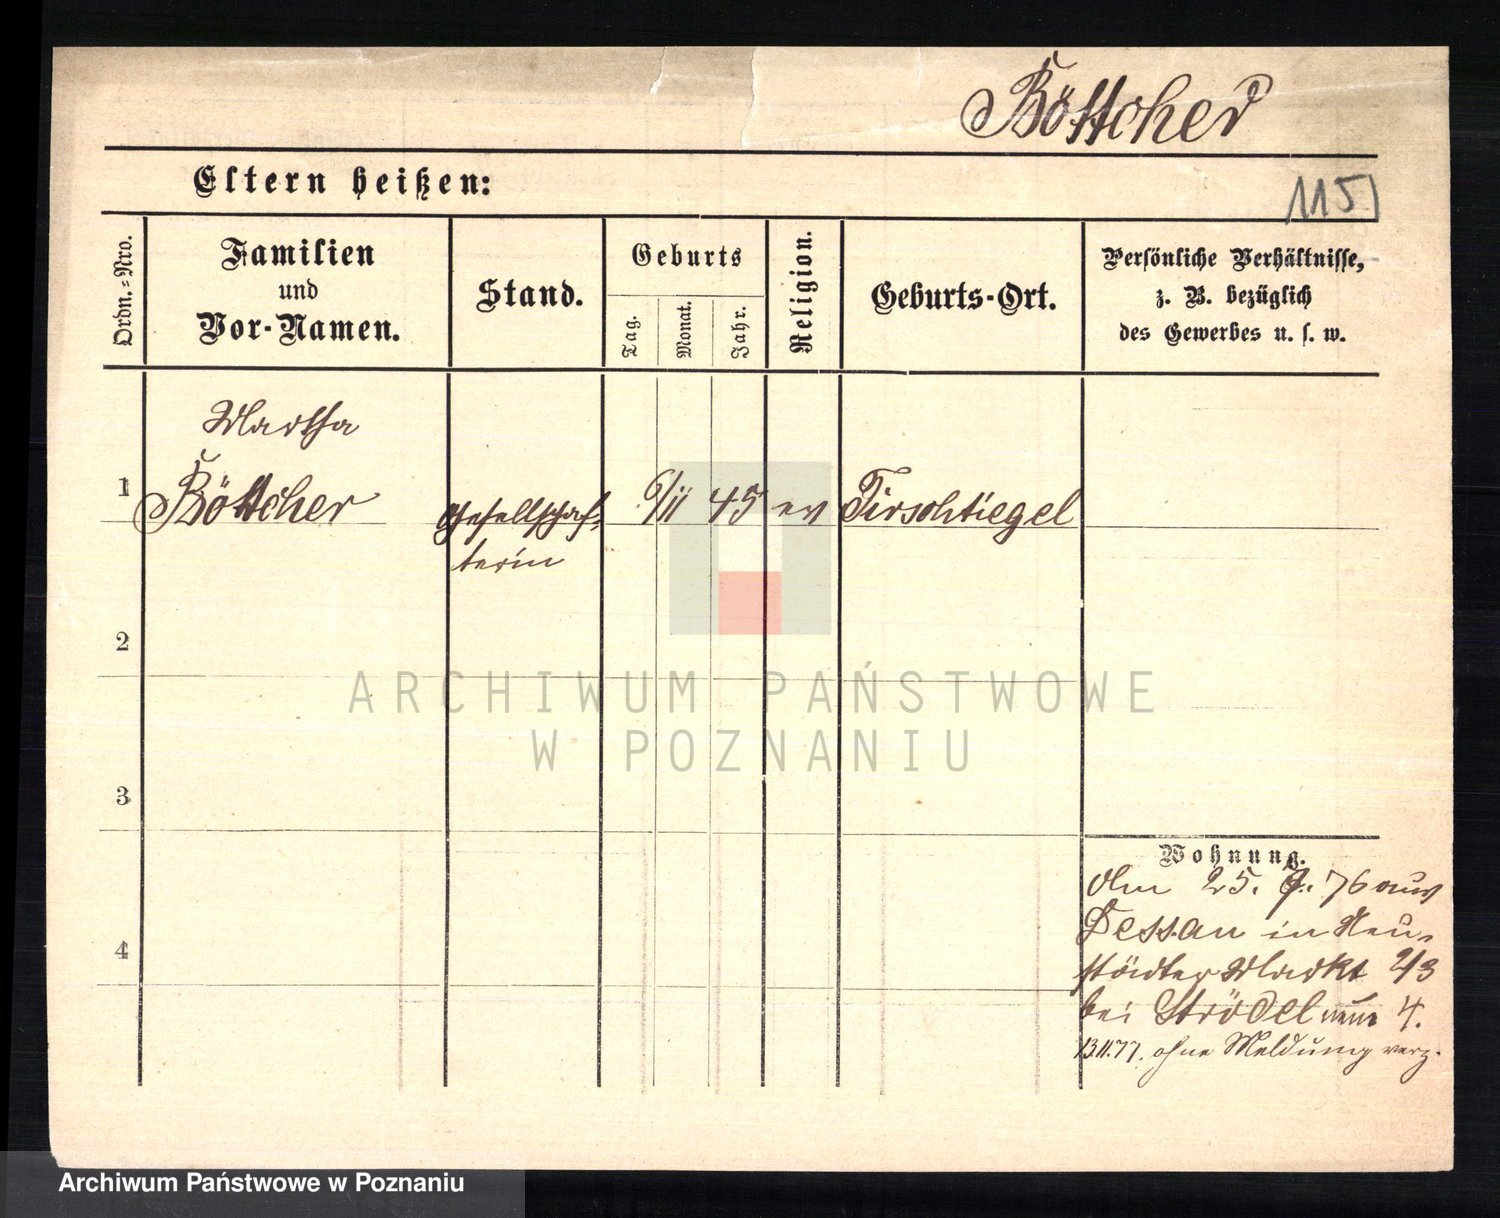 Böttcher
Eltern heißen:
115
Ordn.-Nro.
Familien
und
Vor-Namen.
Stand.
Geburts
Tag.
Monat.
Jahr.
Religion.
Geburts-Ort.
Persönliche Verhältnisse,
z. B. bezüglich
des Gewerbes u. s. w.
Martha
1 Böttcher Gesellschaf- 6/11 45 ev Tirschtiegel
terin
2
ARCHIWUM PAŃSTWOWE
W POZNANIU
3
Wohnung.
25. 76 aus
4 Dessau in Neu-
städter Markt 2/3
bei Strödel 4.
13.11.77. ohne Meldung verz.
Archiwum Państwowe w Poznaniu